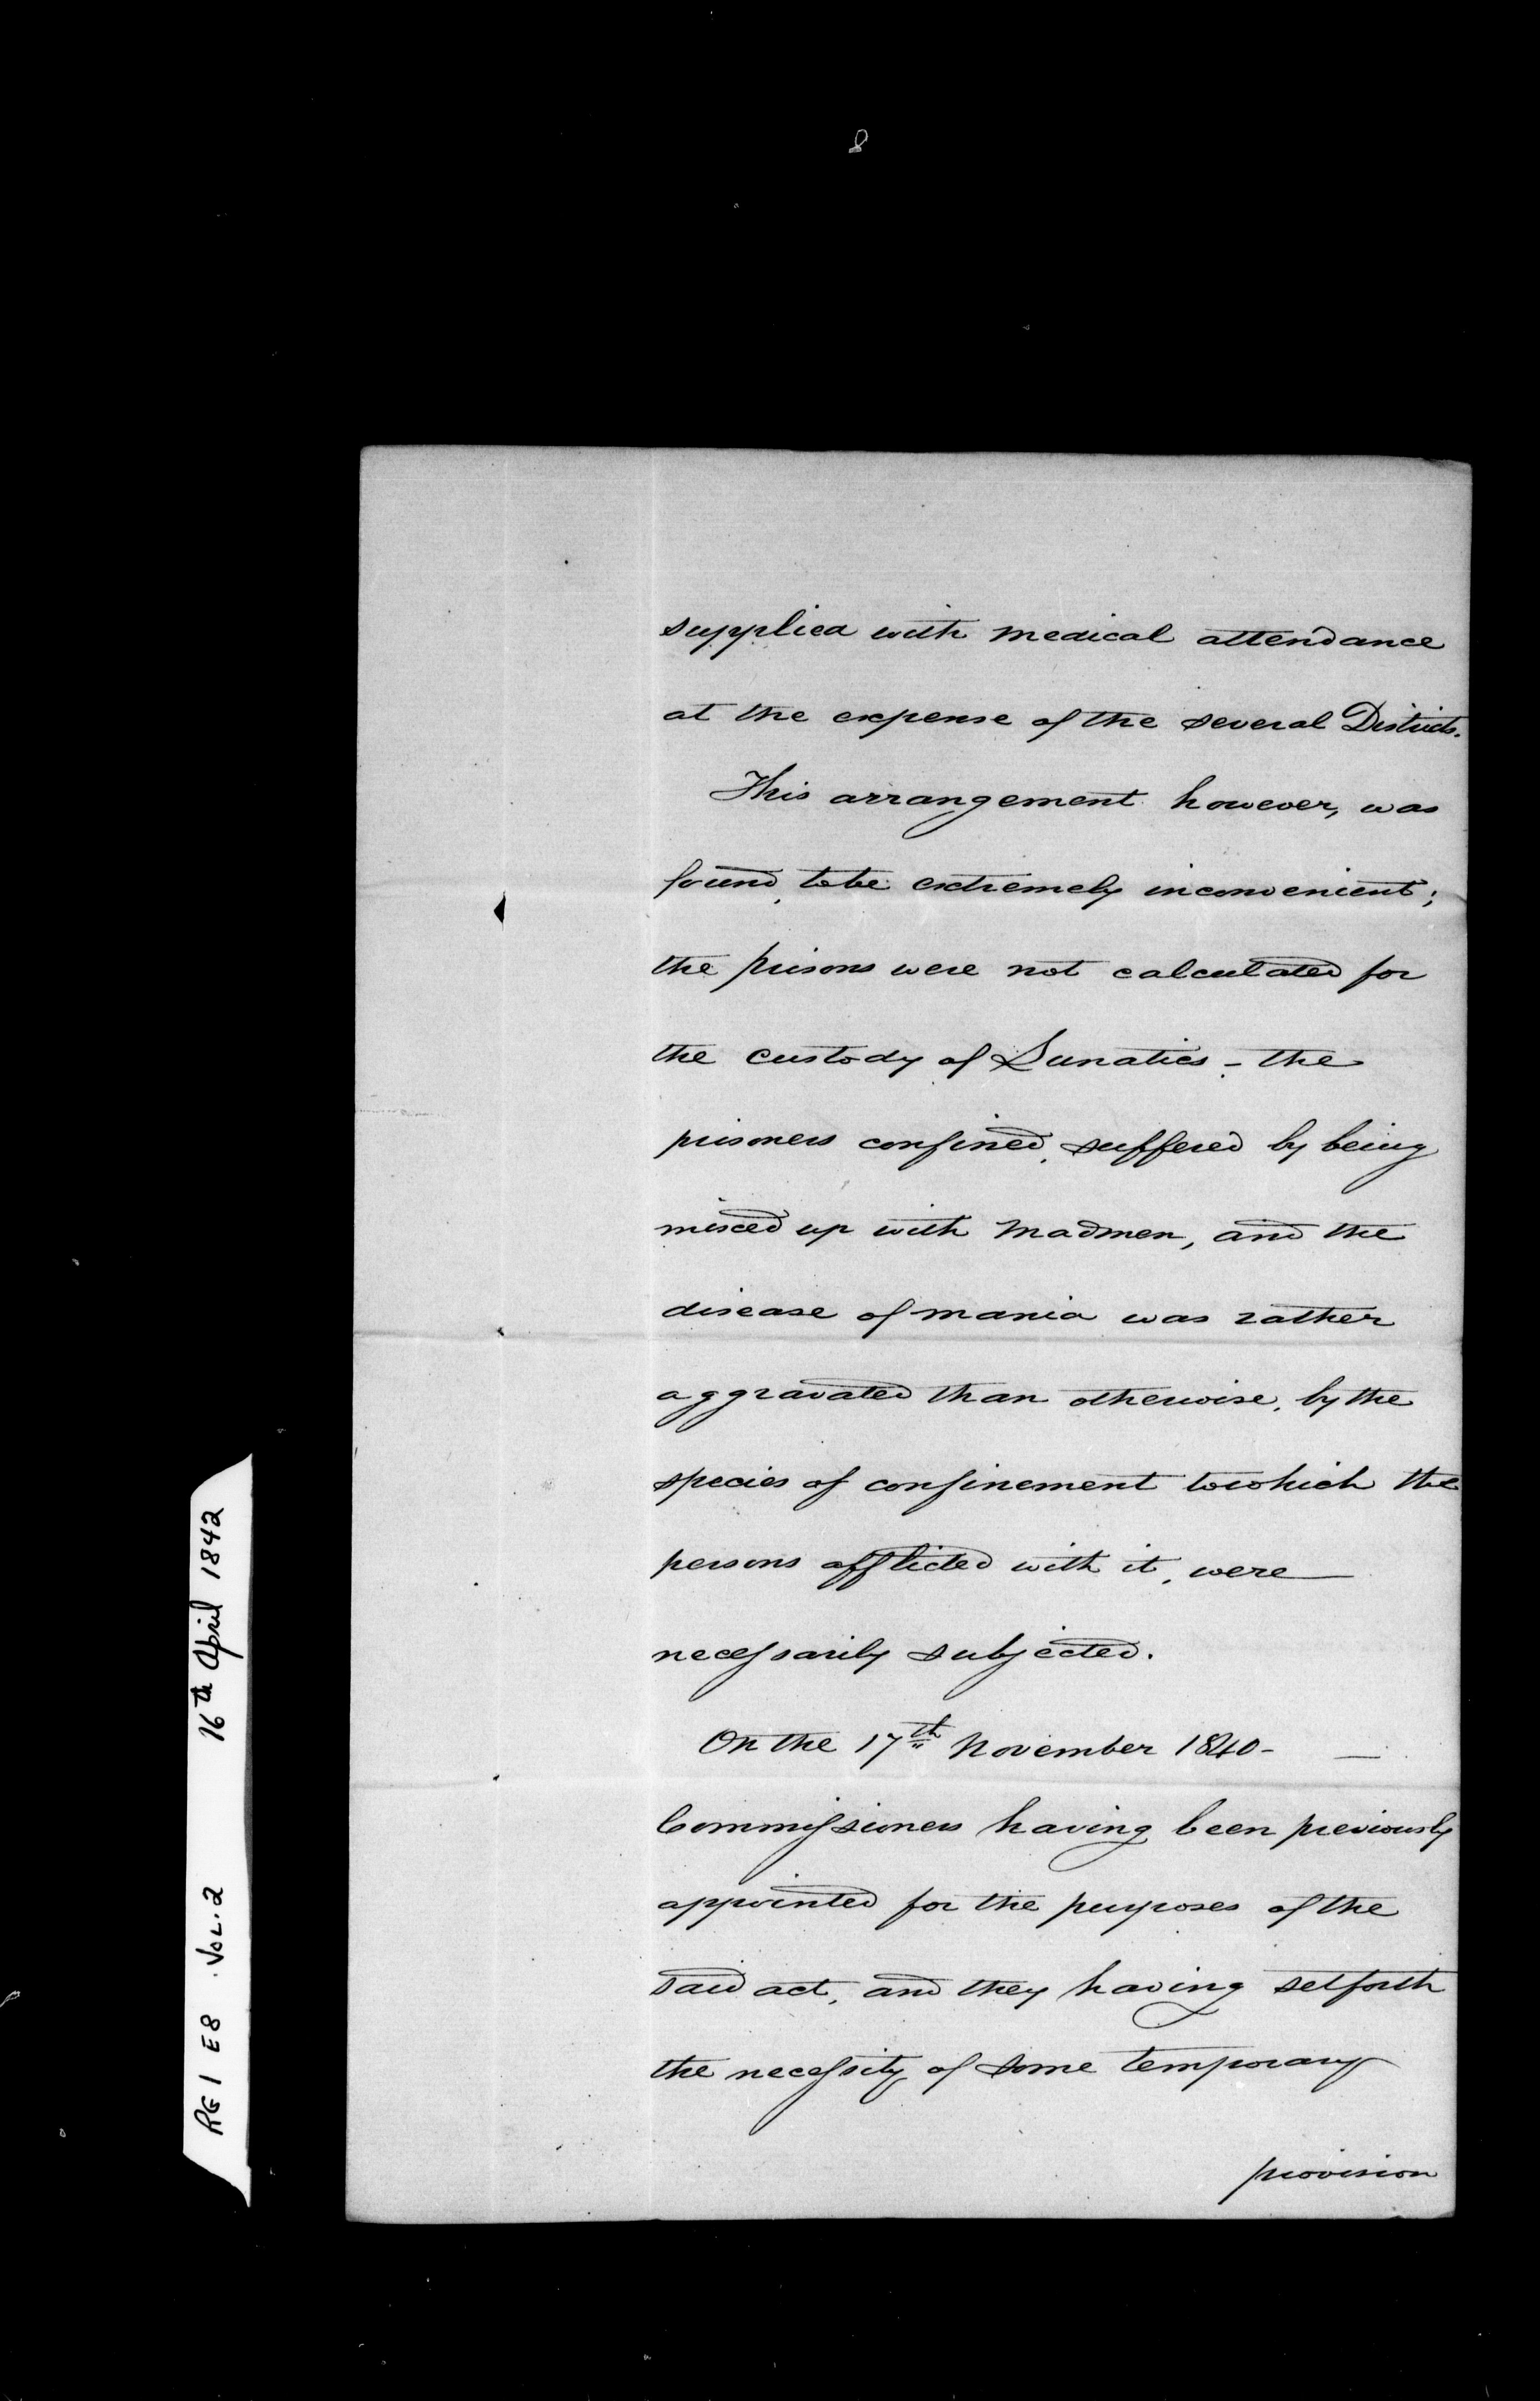 supplied with medical attendance
at the expense of the several Districts.
This arrangement however, was
found, to be extremely inconvenient;
the prisons were not calculated for
the custody of Lunatics - the
prisoners confined, suffered by being
mixed up with Madmen, and the
disease of mania was rather
aggravated than otherwise, by the
species of confinement to which the
persons afflicted with it, were
necessarily subjected.
On the 17th November 1840 -
Commissioners having been previously
appointed for the purposes of the
said act, and they having set forth
the necessity of some temporary
provision
RG1 E8 Vol. 2 16th April 1842